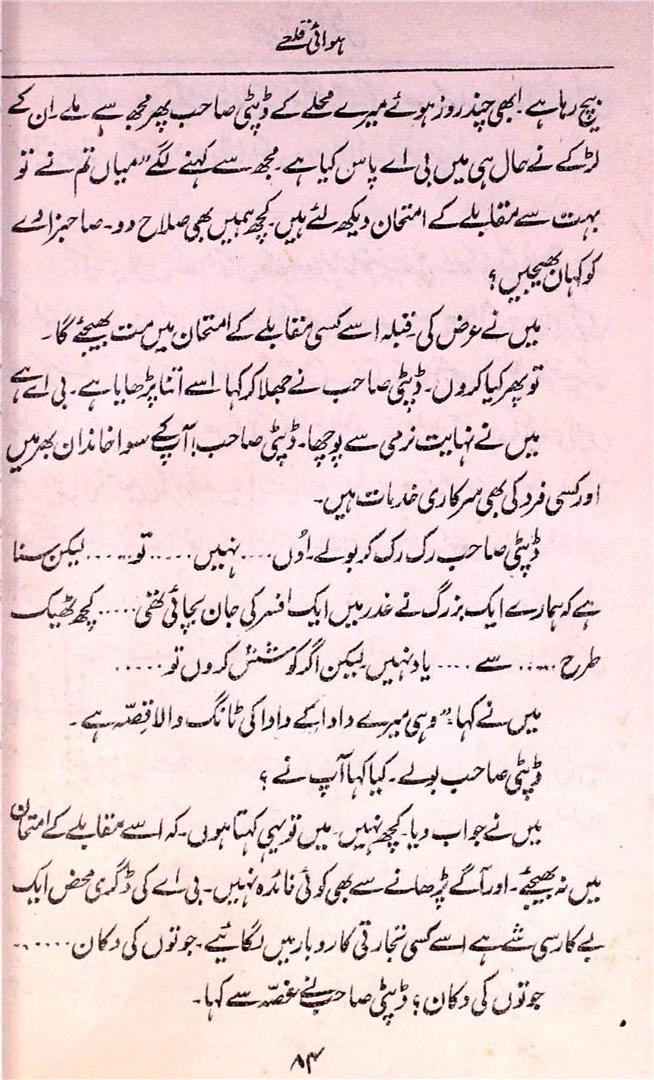 ہوائی قلعے
بیچ رہا ہے۔ ابھی چند روز ہوئے میرے محلے کے ڈپٹی صاحب پھر مجھ سے ملے۔ ان کے
لڑکے نے حال ہی میں بی اے پاس کیا ہے۔ مجھ سے کہنے لگے "میاں تم نے تو
بہت سے مقابلے کے امتحان دیکھ لئے ہیں۔ کچھ ہمیں بھی صلاح دو۔ صاحبزادے
کو کہاں بھیجیں؟
میں نے عرض کی۔ قبلہ اسے کسی مقابلے کے امتحان میں مت بھیجئے گا۔
تو پھر کیا کروں۔ ڈپٹی صاحب نے جھلا کر کہا اسے اتنا پڑھایا ہے۔ بی اے ہے
میں نے نہایت نرمی سے پوچھا۔ ڈپٹی صاحب! آپ کے سوا خاندان بھر میں
اور کسی فرد کی بھی سرکاری خدمات ہیں۔
ڈپٹی صاحب رک رک کر بولے۔ اوں.... نہیں ..... تو ...... لیکن سنا
ہے کہ ہمارے ایک بزرگ نے غدر میں ایک افسر کی جان بچائی تھی ..... کچھ ٹھیک
طرح ..... سے .... یاد نہیں۔ لیکن اگر کوشش کروں تو .....
میں نے کہا۔ "وہی میرے دادا کے دادا کی ٹانگ والا قصّہ ہے۔
ڈپٹی صاحب بولے۔ کیا کہا آپ نے؟
میں نے جواب دیا۔ کچھ نہیں۔ میں تو یہی کہتا ہوں۔ کہ اسے مقابلے کے امتحان
میں نہ بھیجئے۔ اور آگے پڑھانے سے بھی کوئی فائدہ نہیں۔ بی اے کی ڈگری محض ایک
بے کار سی شے ہے اسے کسی تجارتی کاروبار میں لگائیے۔ جوتوں کی دکان ......
جوتوں کی دکان؟ ڈپٹی صاحب نے غصّہ سے کہا۔
۸۴